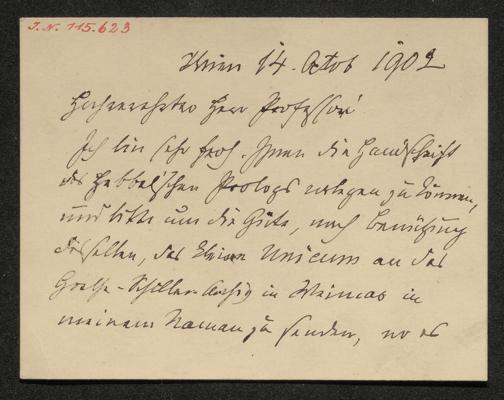 I. N. 115.623
Wien 14. Octob 1902
Hochverehrter Herr Professor
Ich bin sehr froh, Ihnen die Handschrift
des Hebbel'schen Prologs vorlegen zu können,
und bitte um die Güte, nach Benützung
desselben, das kleine Unicum an das
Goethe-Schiller-Archiv in Weimar in
meinem Namen zu senden, wo es